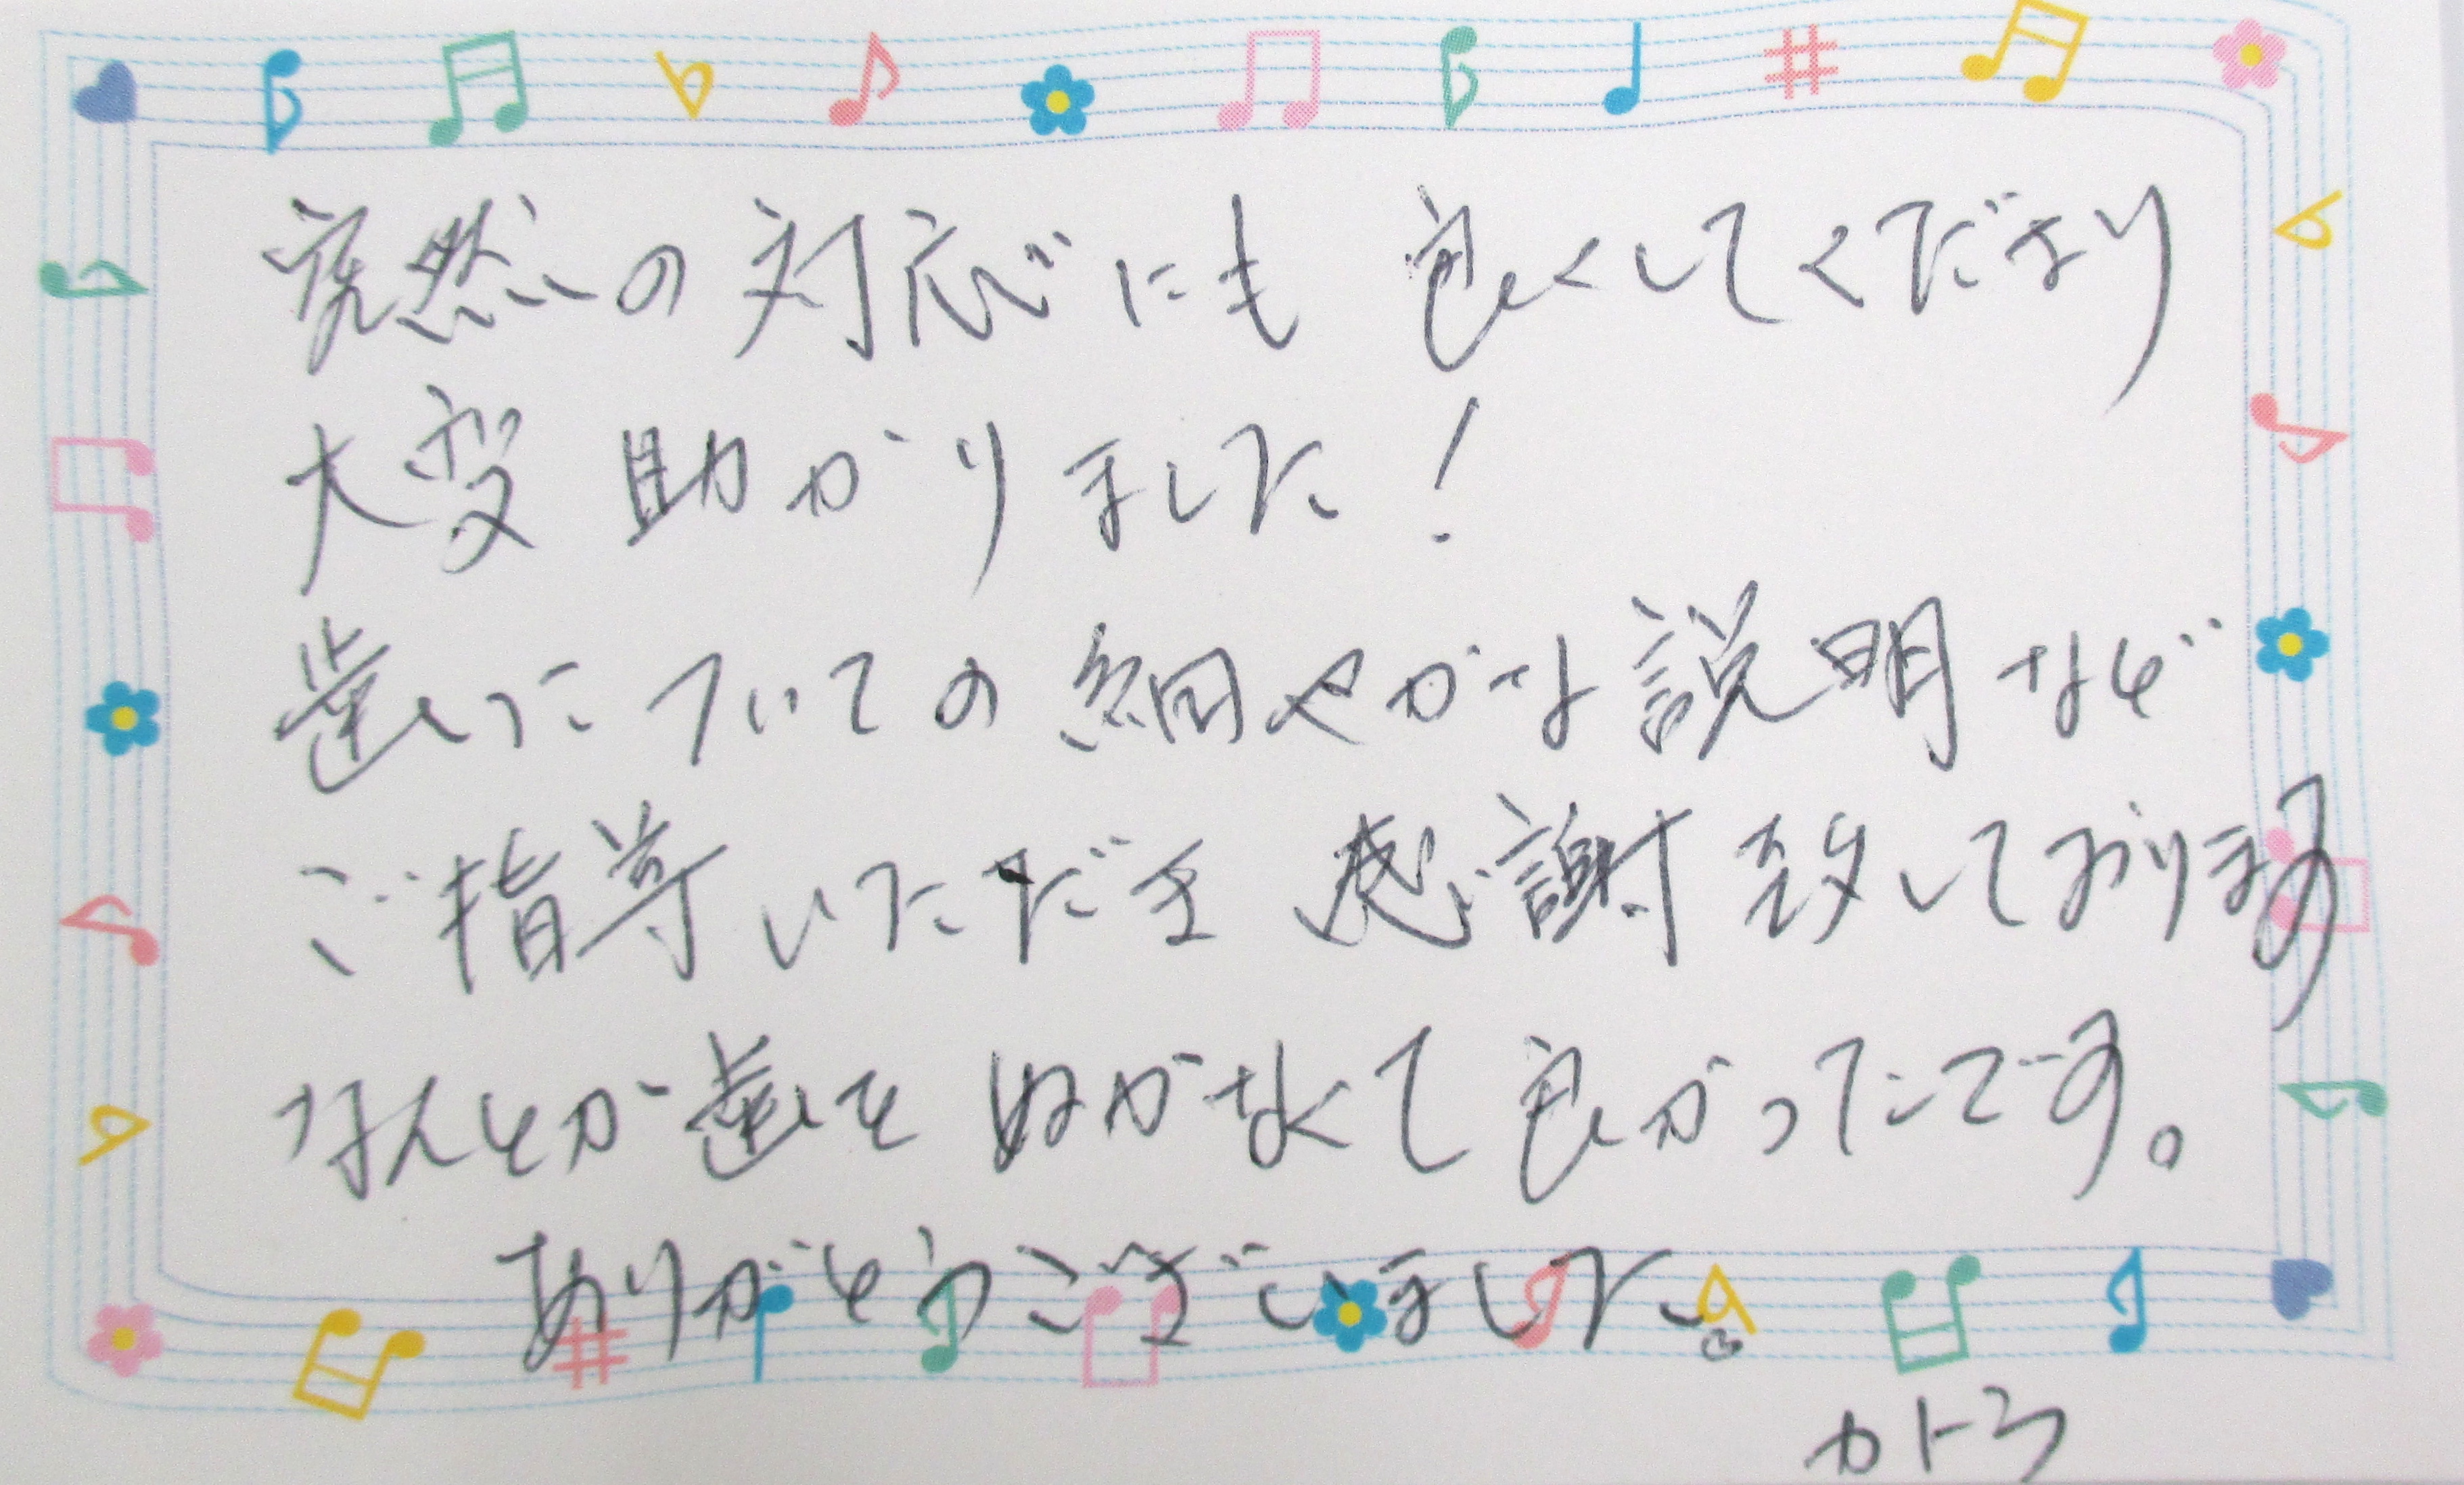 突然の対応にも 良くしてくださり
大変 助かりました!
歯についての細やかな説明など
ご指導いただき 感謝致しております
なんとか歯を ぬかなくて 良かったです。
ありがとうございました。
カトウ